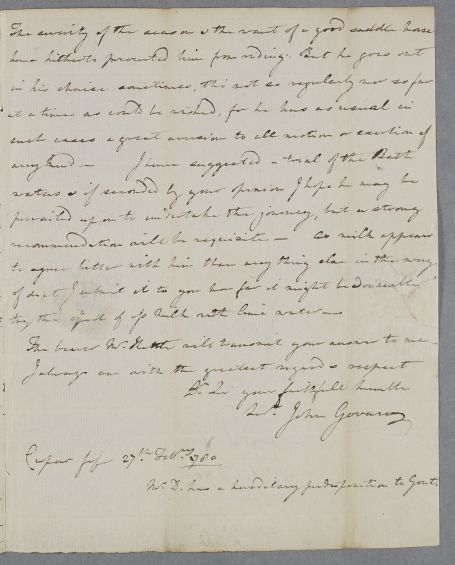 The severity of the season & the want of a good saddle horse
have hitherto prevented him from riding. But he goes out
in his chaise sometimes, tho not so regularly nor so far
at a time as could be wished, for he has as usual in
such cases a great aversion to all motion or exertion of
any kind — I have suggested a trial of the Bath
waters & if seconded by your opinion I hope he may be
prevailed upon to undertake the journey, but a strong
recommendation will be requisite — As milk appears
to agree better with him than any thing else in the way
of diet, I submit it to you how far it might be adviseable
to try the effect of Milk with lime water —
The bearer Mr. will transmit your answer to me —
I always am with the greatest regard & respect
Dr. Sir your faithfull humble
Servt. John Govan
Cupar fife 27th Febry. 1780
Mr. D. has a hereditary predisposition to Gout.